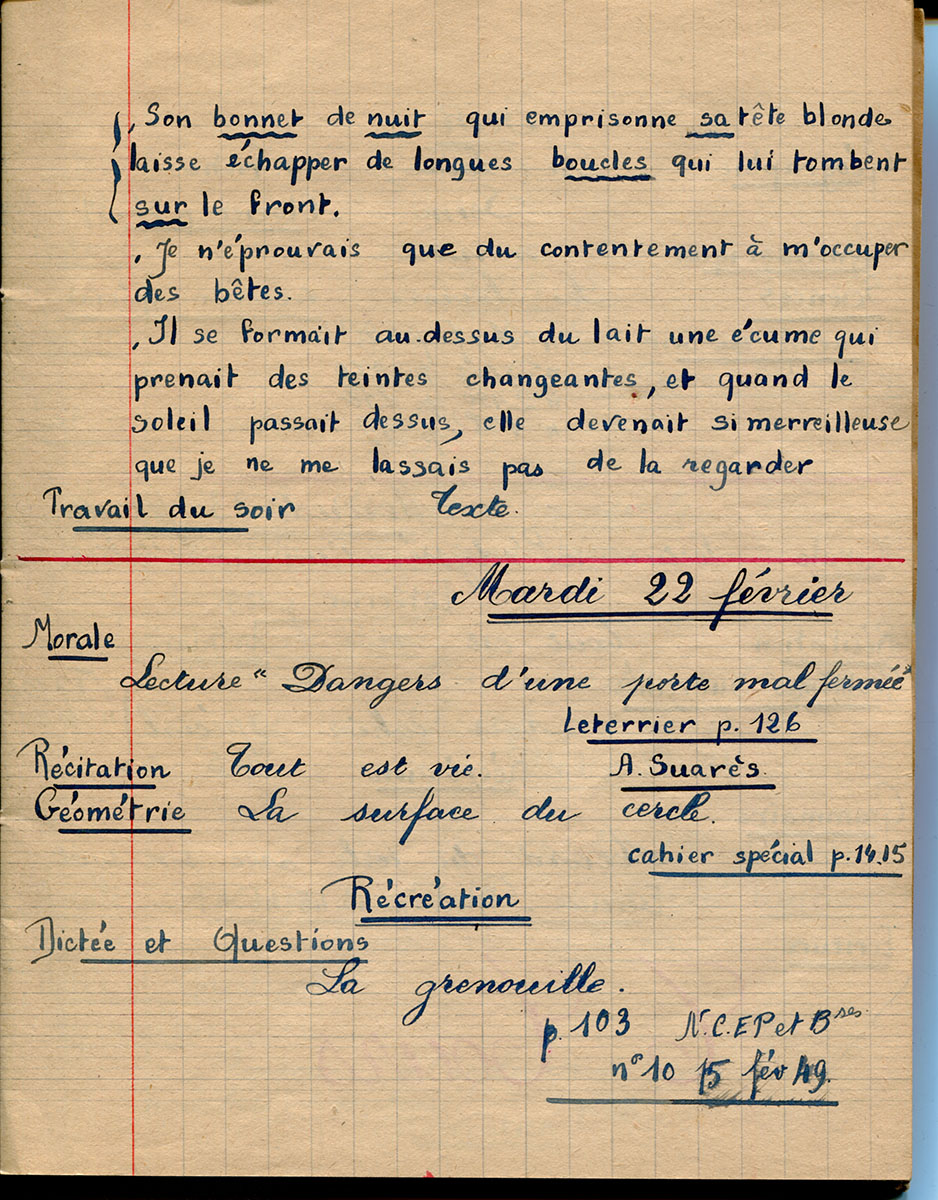 , Son bonnet de nuit qui emprisonne sa tête blonde
laisse échapper de longues boucles qui lui tombent
sur le front.
, Je n'éprouvais que du contentement à m'occuper
des bêtes.
, Il se formait au-dessus du lait une écume qui
prenait des teintes changeantes, et quand le
soleil passait dessus, elle devenait si merreilleuse
que je ne me lassais pas de la regarder
Travail du soir Texte.
Mardi 22 février
Morale
Lecture " Dangers d'une porte mal fermée"
Leterrier p. 126
Récitation Tout est vie. A. Suarès.
Géométrie La surface du cercle.
cahier spécial p. 14.15
Récréation
Dictée et Questions
La grenouille.
p. 103 N.C.EP et Bses
n° 10 15 fév 49.